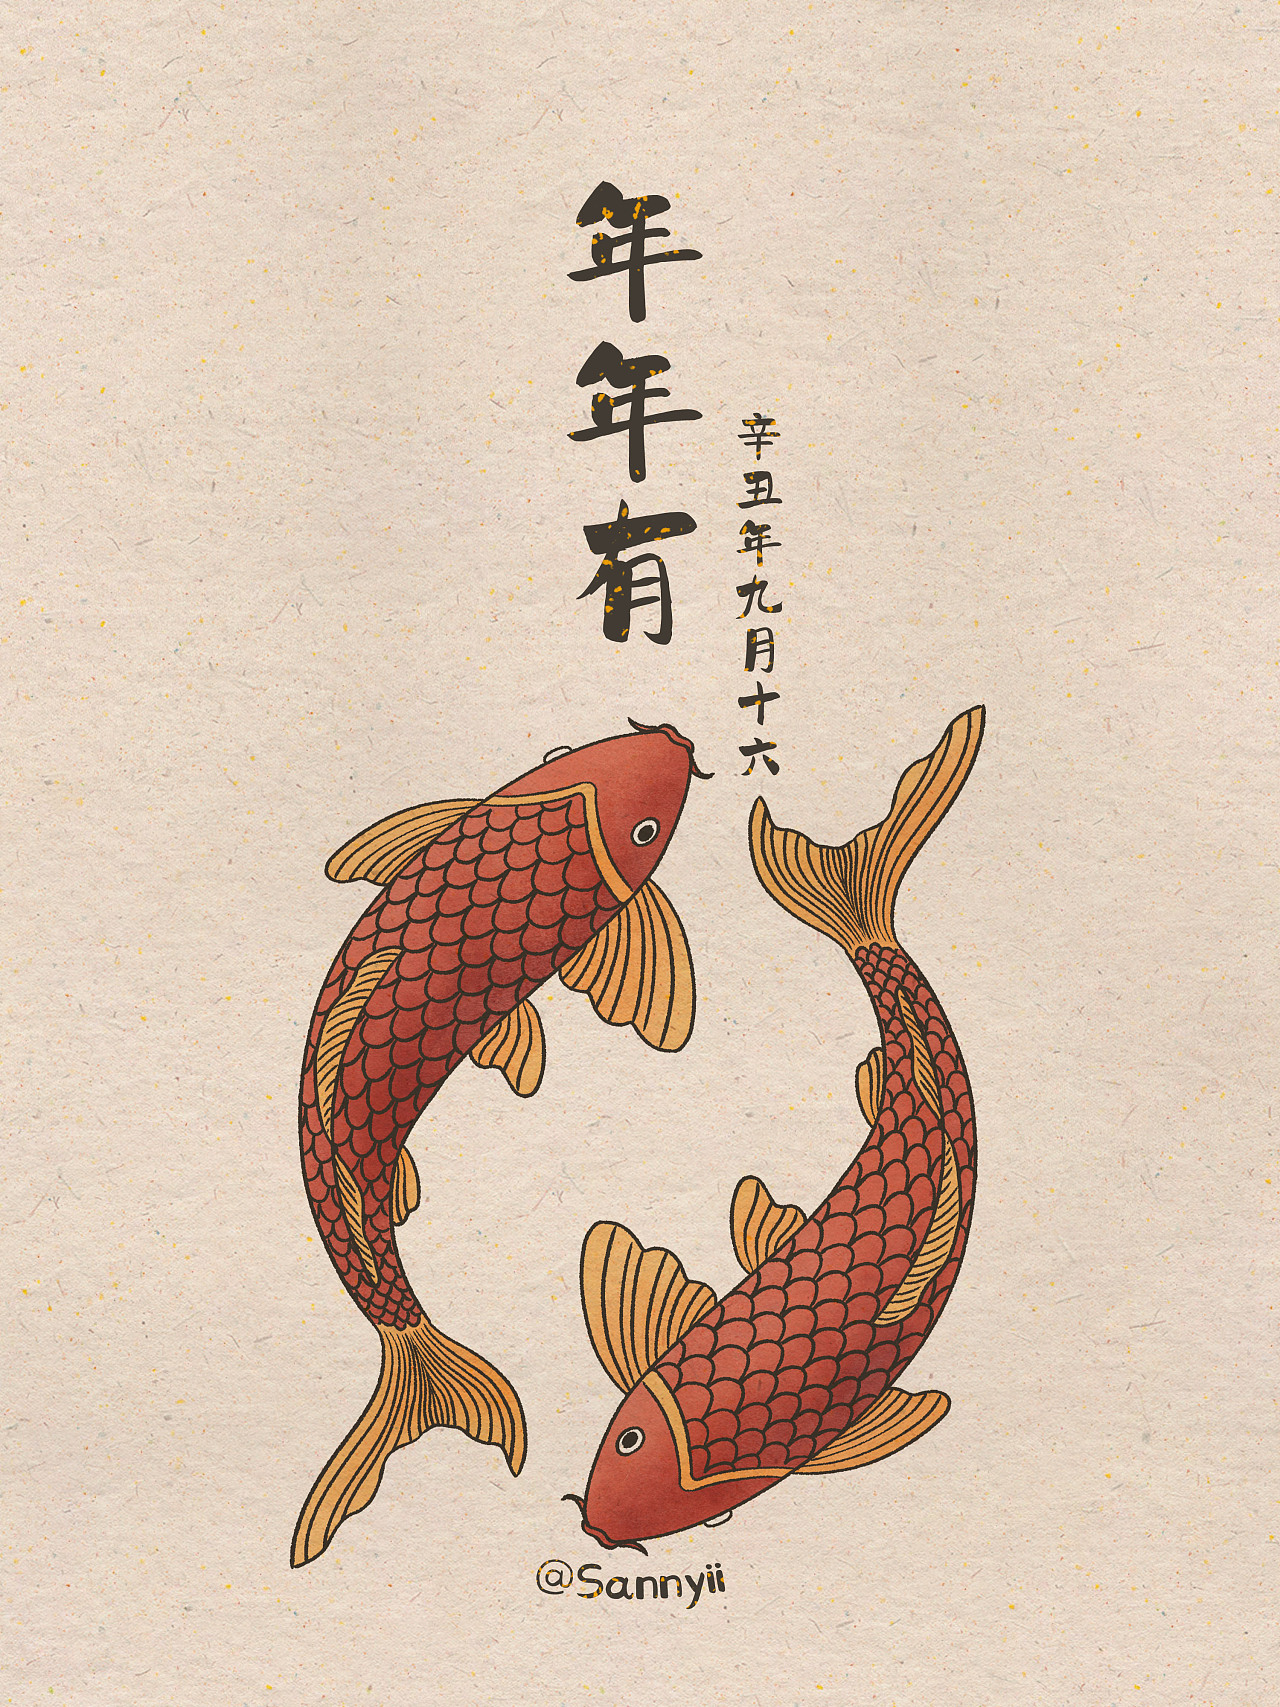 年年有
辛丑年九月十六
@Sannyii